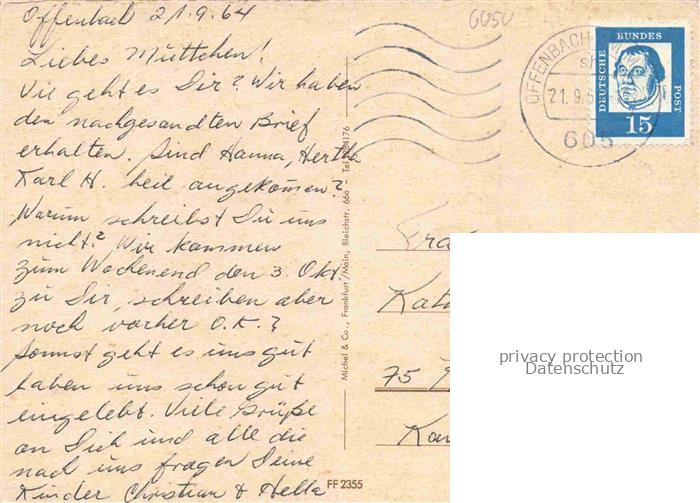 Offenbach 21.9.64
Liebes Muttchen!
Wie geht es Dir? Wir haben
den nachgesandten Brief
erhalten. Sind Hanna, Hertha
Karl H. heil angekomen?
Warum schreibst Du uns
nicht? Wir kommen
zum Wochenend den 3. Okt.
zu Dir, schreiben aber
noch vorher O.K.?
Sonnst geht es uns gut
haben uns schon gut
eingelebt. Viele Grüße
an Dich und alle die
nach uns fragen Deine
Kinder Christian & Hella
Michel & Co., Frankfurt/Main, Bleichstr. 66a Tel.
FF 2355
6050
OFFENBACH
21.9.
605
DEUTSCHE
BUNDES
POST
15
75
privacy protection
Datenschutz